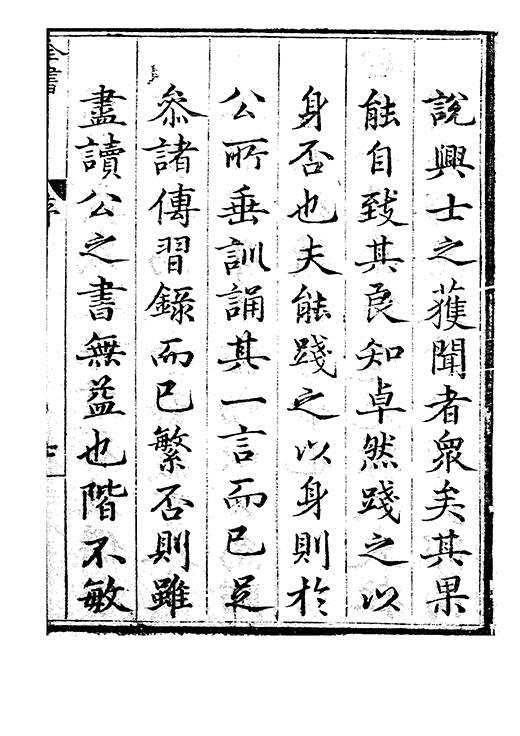 說興士之獲聞者衆矣其果
能自致其良知卓然踐之以
身否也夫能踐之以身則於
公所垂訓誦其一言而已足
叅諸傳習錄而已繁否則雖
盡讀公之書無益也階不敏
全書
序